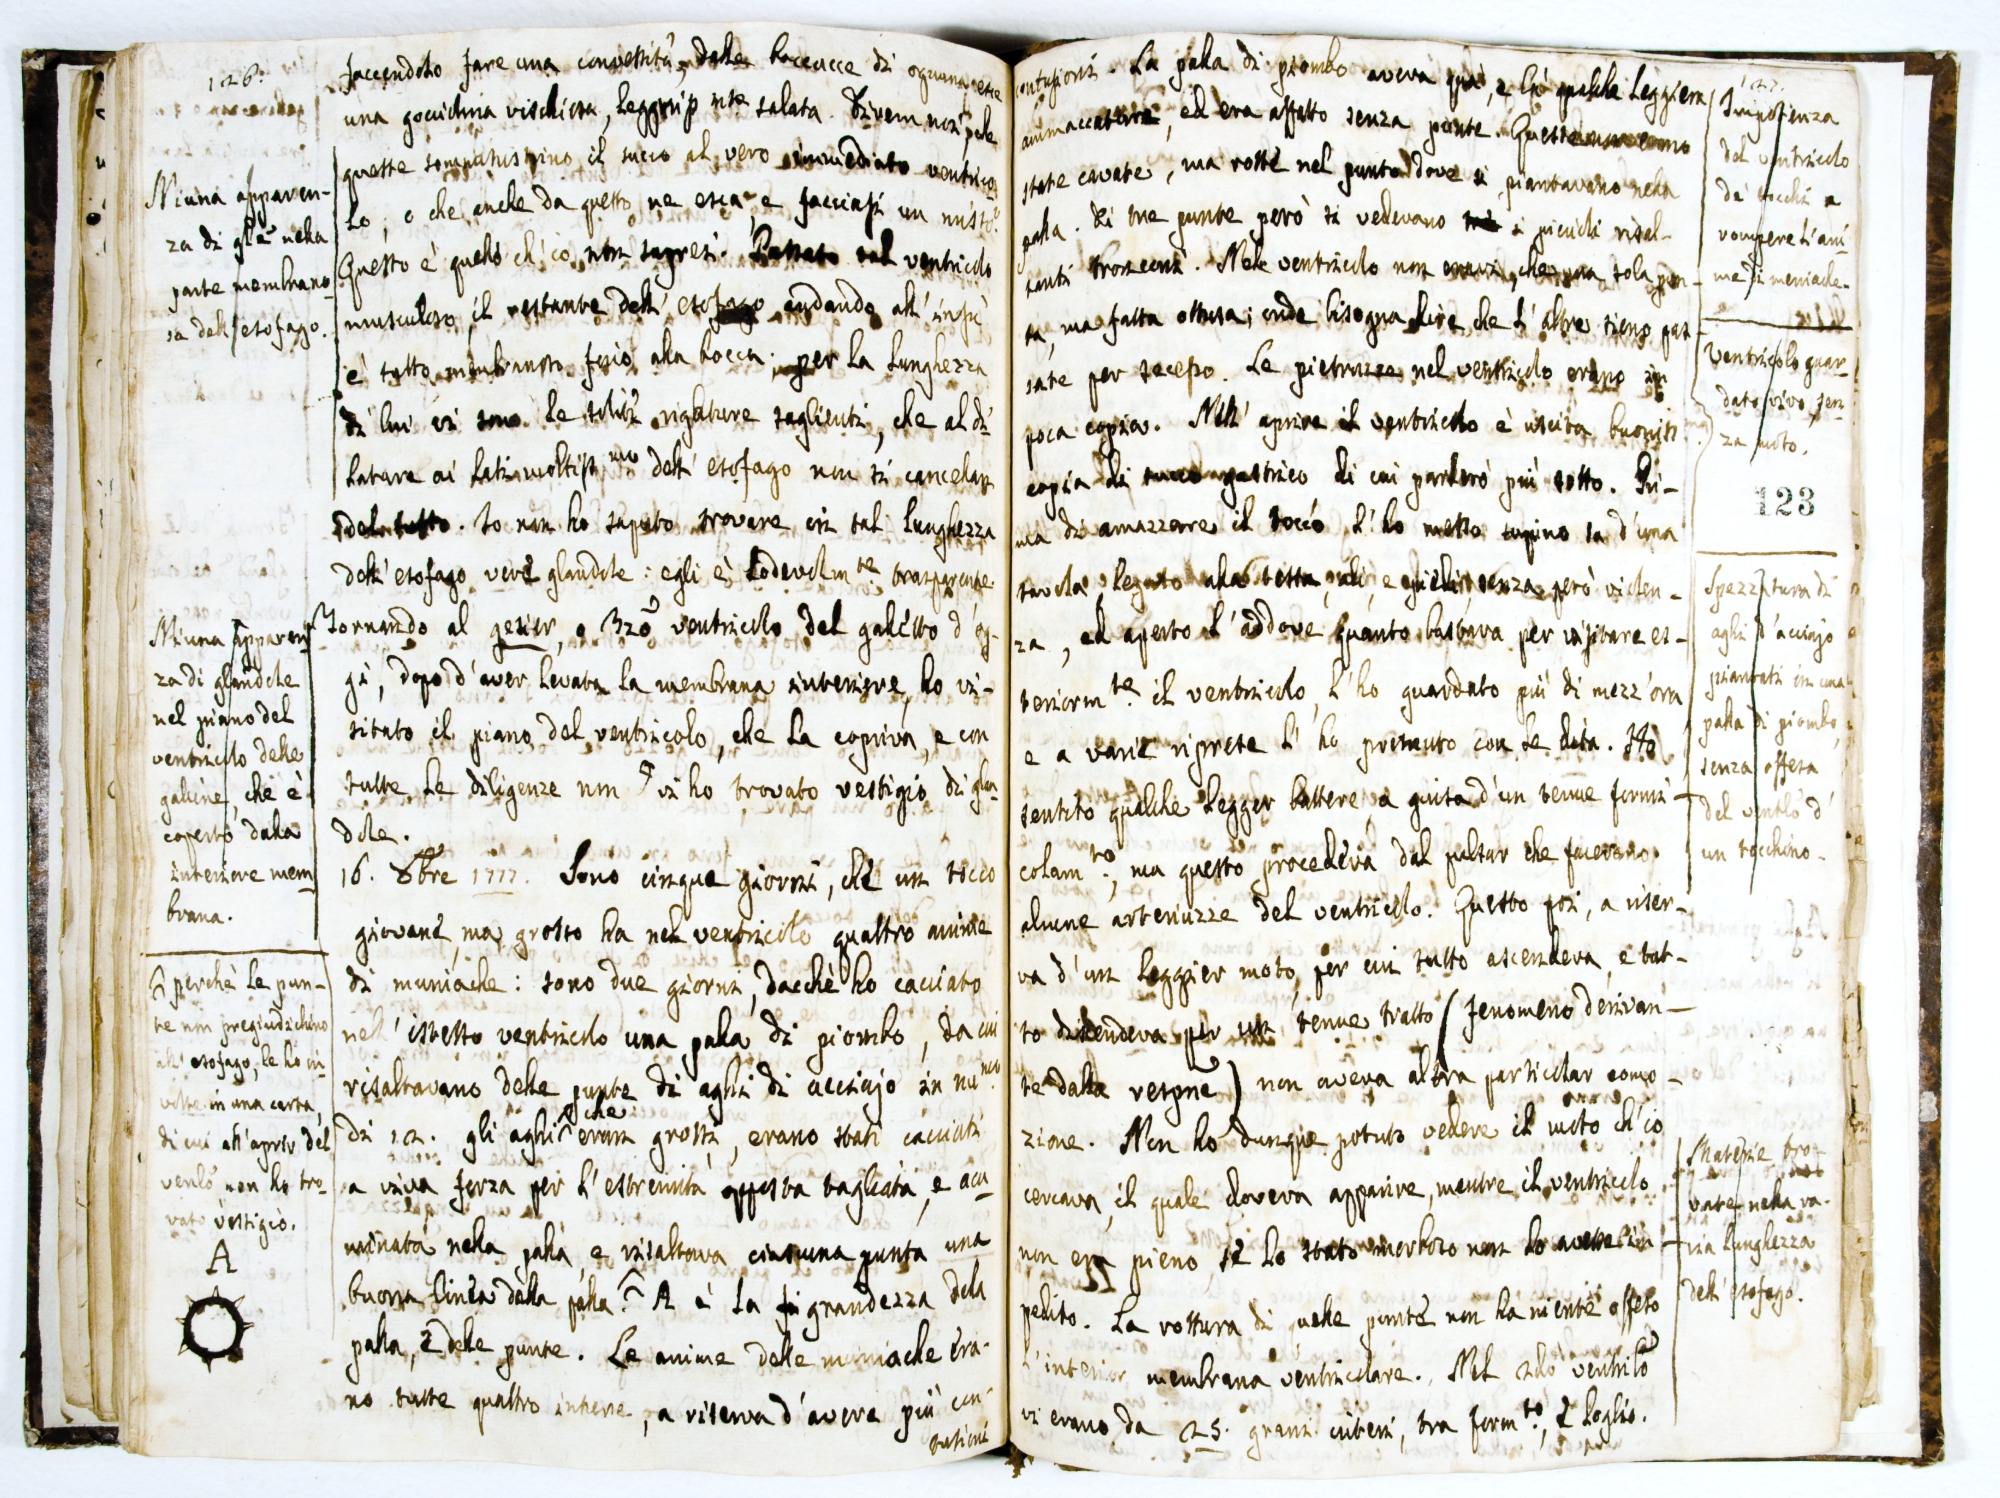 126.
facendolo fare una convessità, dalle boccucce di ognuna esce
una gocciolina vischiosa, leggermte salata. Sivem non pole
queste somministrino il succo al vero immediato ventrico-
lo, o che anche da questo ne esca, e facciasi un misto.
Questo è quello ch'io non saprei. Passato tal ventricolo
musculoso, il restante dell'esofago andando all'insù
è tutto membranoso fino alla bocca; per la lunghezza
di lui vi sono le solite rigature saglienti, che al di-
latare ai lati moltissmo dell'esofago non si cancelan
del tutto. Io non ho saputo trovare in tal lunghezza
dell'esofago vere glandole: egli è lodevolmte trasparente.
Tornando al gezier, o 3zo ventricolo del galletto d'og-
gi, dopo d'aver levata la membrana interiore, ho vi-
sitato il piano del ventricolo, che la copriva, e con
tutte le diligenze non vi ho trovato vestigio di glan-
dole.
16. 8bre 1777. Sono cinque giorni, che un tocco
giovane, ma grosso ha nel ventricolo quattro anime
di muniache: sono due giorni, dacchè ho cacciato
nell'istesso ventricolo una palla di piombo, da cui
risaltavano delle punte di aghi di acciajo in nuo
di 12. gli aghi che eran grossi, erano stati cacciati
a viva forza per l'estremità opposta tagliata, e acu-
minata nella palla, e risaltava ciascuna punta una
buona linea dalla palla. A è la grandezza della
palla, e delle punte. Le anime delle muniache era-
no tutte quattro intere, a riserva d'avere più con-
tusioni
Niuna apparen-
za di gle nella
parte membrano-
sa dell'esofago.
Niuna apparen-
za di glandole
nel piano del
ventricolo delle
galline, che è
coperto dalla
interiore mem-
brana.
perchè le pun-
te non pregiudichino
all'esofago, le ho in-
volte in una carta,
di cui all'aprir del
ventlo non ho tro-
vato vestigio.
A
127.
contusioni. La palla di piombo aveva quà, e là qualche leggiera
ammaccatura, ed era affatto senza punte. Queste non erano
state cavate, ma rotte nel punto dove si piantavano nella
palla. Di tre punte però si vedevano i piccioli risal-
tanti tronconi. Nel ventricolo non eravi, che una sola pun-
ta, ma fatta ottusa; onde bisogna dire che l'altre sieno pas-
sate per secesso. Le pietruzze nel ventricolo erano in
poca copia. Nell'aprire il ventricolo è uscita buonissma
copia di succo gastrico di cui parlerò più sotto. Pri-
ma di amazzare il tocco l'ho messo supino su d'una
tavola, legato alla testa, ali, e piedi, senza però violen-
za, ed aperto l'addome quanto bastava per visitare es-
teriormte il ventricolo, l'ho guardato più di mezz'ora
e a varie riprese l'ho premuto con le dita. Hò
sentito qualche legger battere, a guisa d'un tenue formi-
colamto, ma questo procedeva dal pulsar che facevano
alcune arteriuzze del ventricolo. Questo poi, a riser-
va d'un leggier moto, per cui tutto ascendeva, e tut-
to discendeva per un tenue tratto (fenomeno derivan-
te dalla respne) non aveva altra particolar como-
zione. Non ho dunque potuto vedere il moto ch'io
cercava, il quale doveva apparire, mentre il ventricolo
non era pieno, se lo stato morboso non lo avesse im-
pedito. La rottura di quelle punte non ha niente offeso
l'interior membrana ventricolare. Nel 2do ventrilo
vi erano da 25. grani interi, tra formto, e loglio.
Impotenza
del ventricolo
de' tocchi a
rompere l'ani-
me di meniache.
Ventricolo guar-
dato vivo, sen-
za moto.
123
Spezzatura di
aghi d'acciajo
piantati in una
palla di piombo,
senza offesa
del ventlo d'
un tocchino.
Materie tro-
vate nella va-
ria lunghezza
dell'esofago.